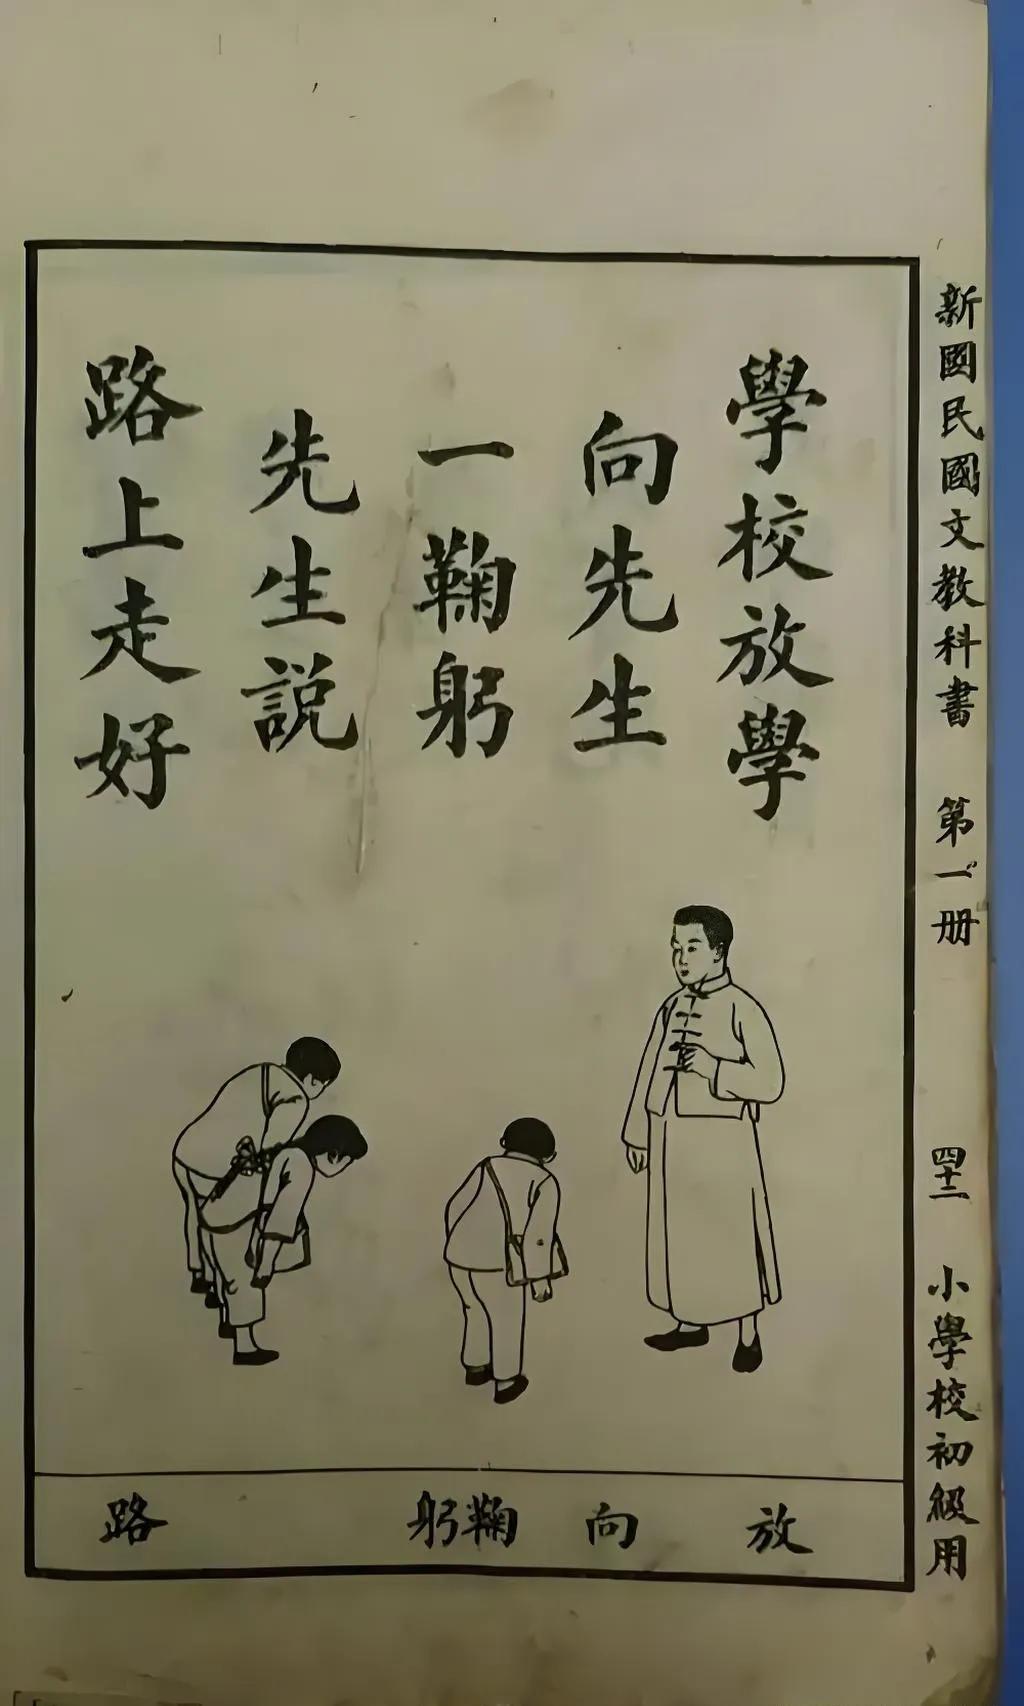 新國民國文教科書 第一册 四十二 小學校初級用
學校放學
向先生
一鞠躬
先生説
路上走好
放
向
鞠躬
路